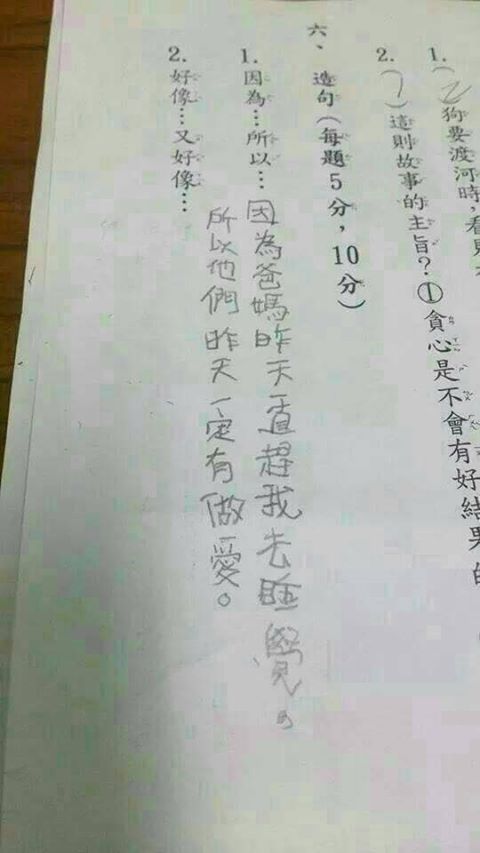 1.(2)狗要渡河時，看見
2.(1)這則故事的主旨？①貪心是不會有好結果的
六、造句（每題5分，10分）
1.因為…所以…因為爸媽昨天一直趕我去睡覺。
所以他們昨天一定有做愛。
2.好像…又好像…